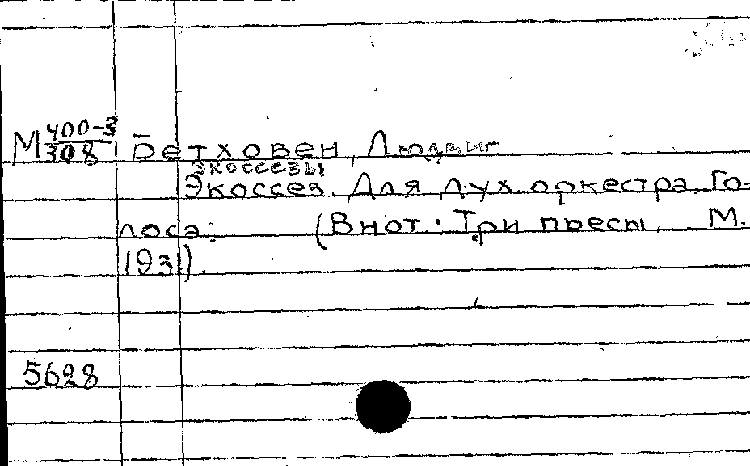 М 400-3/308 Бетховен, Людвиг
Экоссезы
Экоссез. Для дух. оркестра. Го-
лоса. (В нот.: Три пьесы, М.
1931).
5628